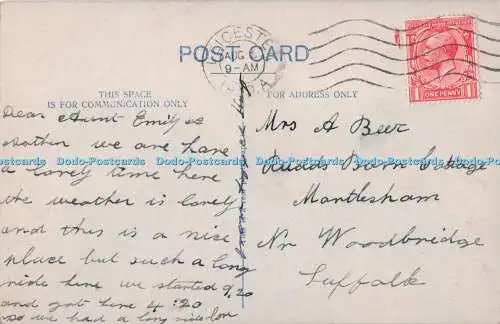 LEICESTER
AUG
9-AM
POST CARD
ONE PENNY
THIS SPACE
IS FOR COMMUNICATION ONLY
FOR ADDRESS ONLY
Dear Aunt Emily &
Mother we are have
a lovely time here
the weather is lovely
and this is a nice
place but such a long
ride here we started 9.20
and got here 4:20
so we had a long ride
Mrs A Beer
Barn Cottage
Martlesham
Nr Woodbridge
Suffolk
Dodo-Postcards Dodo-Postcards Dodo-Postcards Dodo-Postcards Dodo-Postcards